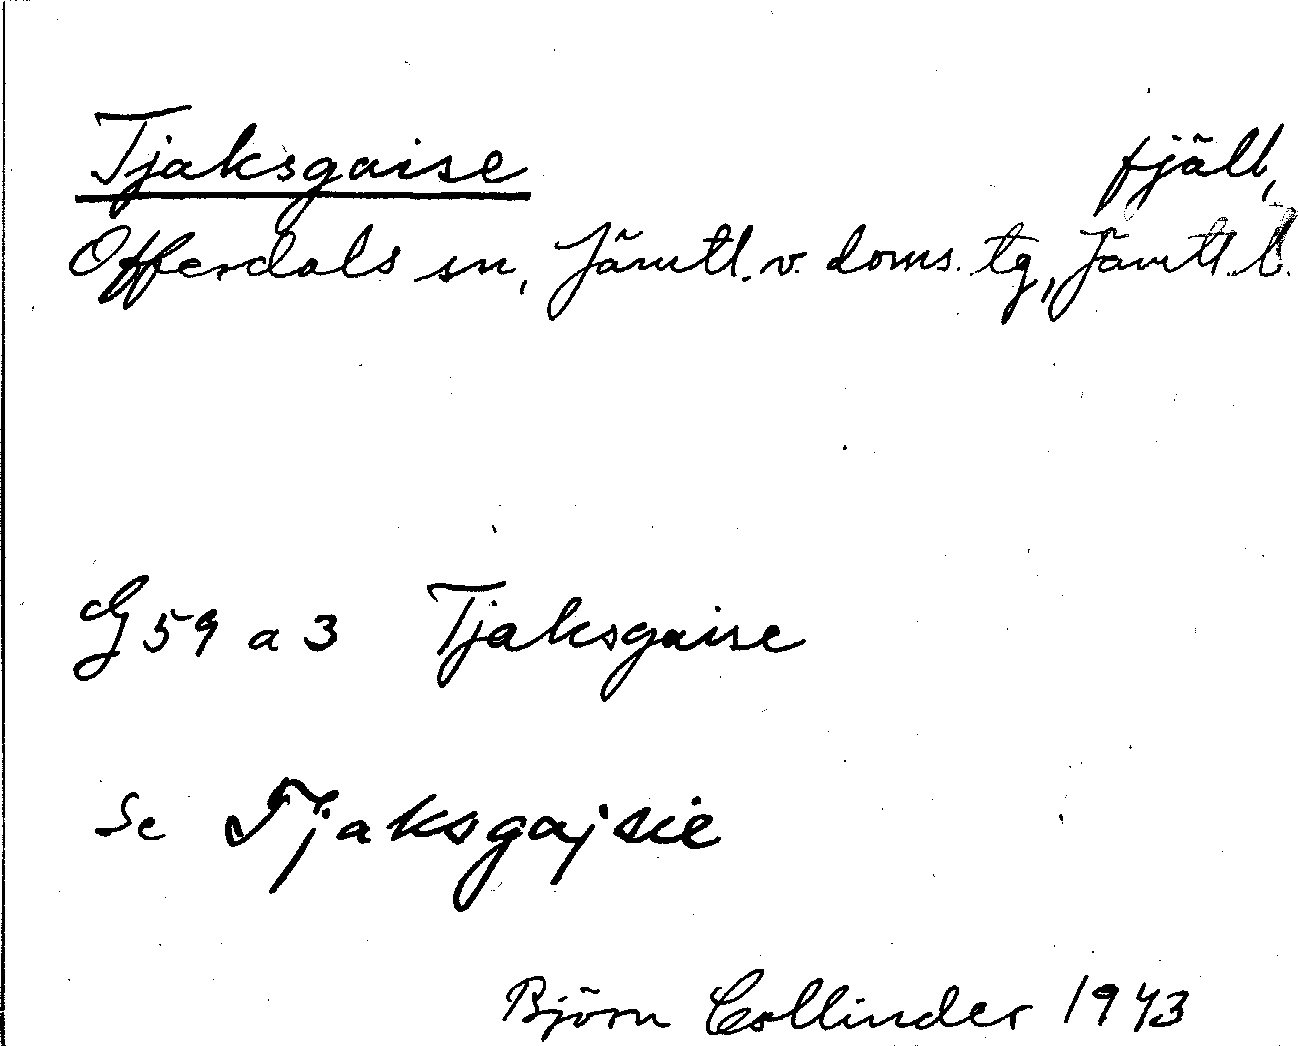 Tjaksgaise fjäll,
Offerdals sn, Jämtl. v. doms. tg, Jämtl. l.
G 59 a 3 Tjaksgaise
Se Tjaksgajsie
Björn Collinder 1943